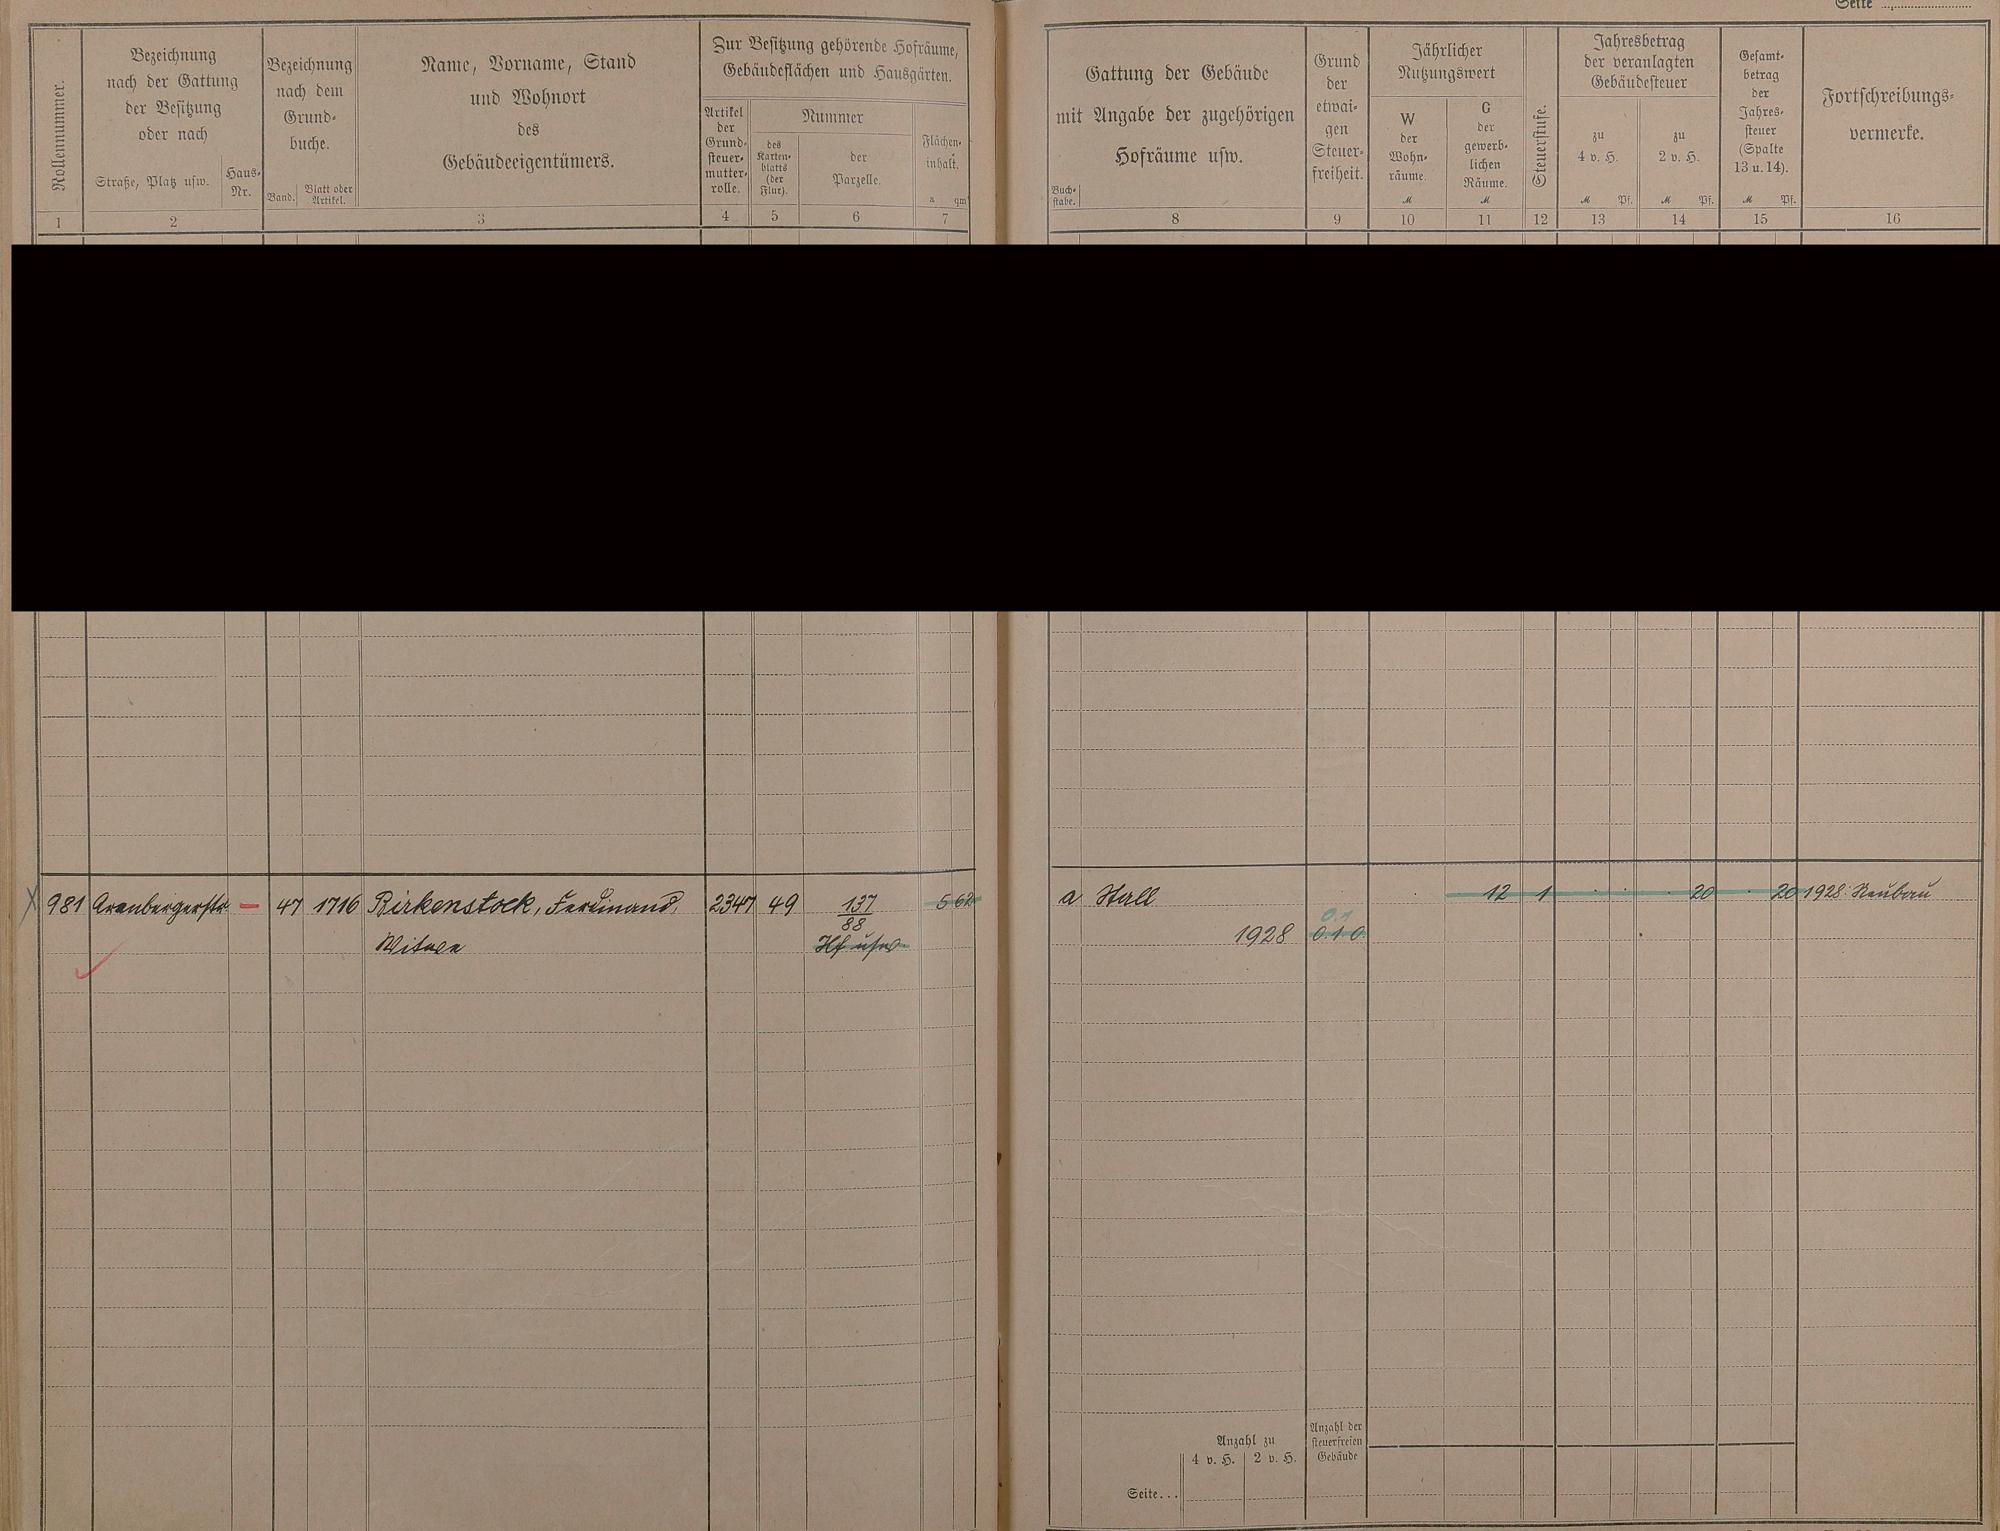 Seite
Rollennummer.
Bezeichnung
nach der Gattung
der Besitzung
oder nach
Straße, Platz usw.
Haus-
Nr.
Bezeichnung
nach dem
Grund-
buche.
Band.
Blatt oder
Artikel.
Name, Vorname, Stand
und Wohnort
des
Gebäudeeigentümers.
Zur Besitzung gehörende Hofräume,
Gebäudeflächen und Hausgärten.
Artikel
der
Grund-
steuer-
mutter-
rolle.
Nummer
des
Karten-
blatts
(der
Flur).
der
Parzelle.
Flächen-
inhalt.
a qm
1 2 3 4 5 6 7
Buch-
stabe.
Gattung der Gebäude
mit Angabe der zugehörigen
Hofräume usw.
Grund
der
etwai-
gen
Steuer-
freiheit.
Jährlicher
Nutzungswert
W
der
Wohn-
räume.
M
G
der
gewerb-
lichen
Räume.
M
Steuerstufe.
Jahresbetrag
der veranlagten
Gebäudesteuer
zu
4 v. H.
M Pf.
zu
2 v. H.
M Pf.
Gesamt-
betrag
der
Jahres-
steuer
(Spalte
13 u. 14).
M Pf.
Fortschreibungs-
vermerke.
8 9 10 11 12 13 14 15 16
981 47 1716 Birkenstock, Ferdinand, 2347 49 137 5 62
88
Witwe Hf usw.
a Stall 12 1 20 20 1928: Neubau
0.1
1928 0.1.0.
Anzahl zu
4 v. H. 2 v. H.
Anzahl der
steuerfreien
Gebäude
Seite...